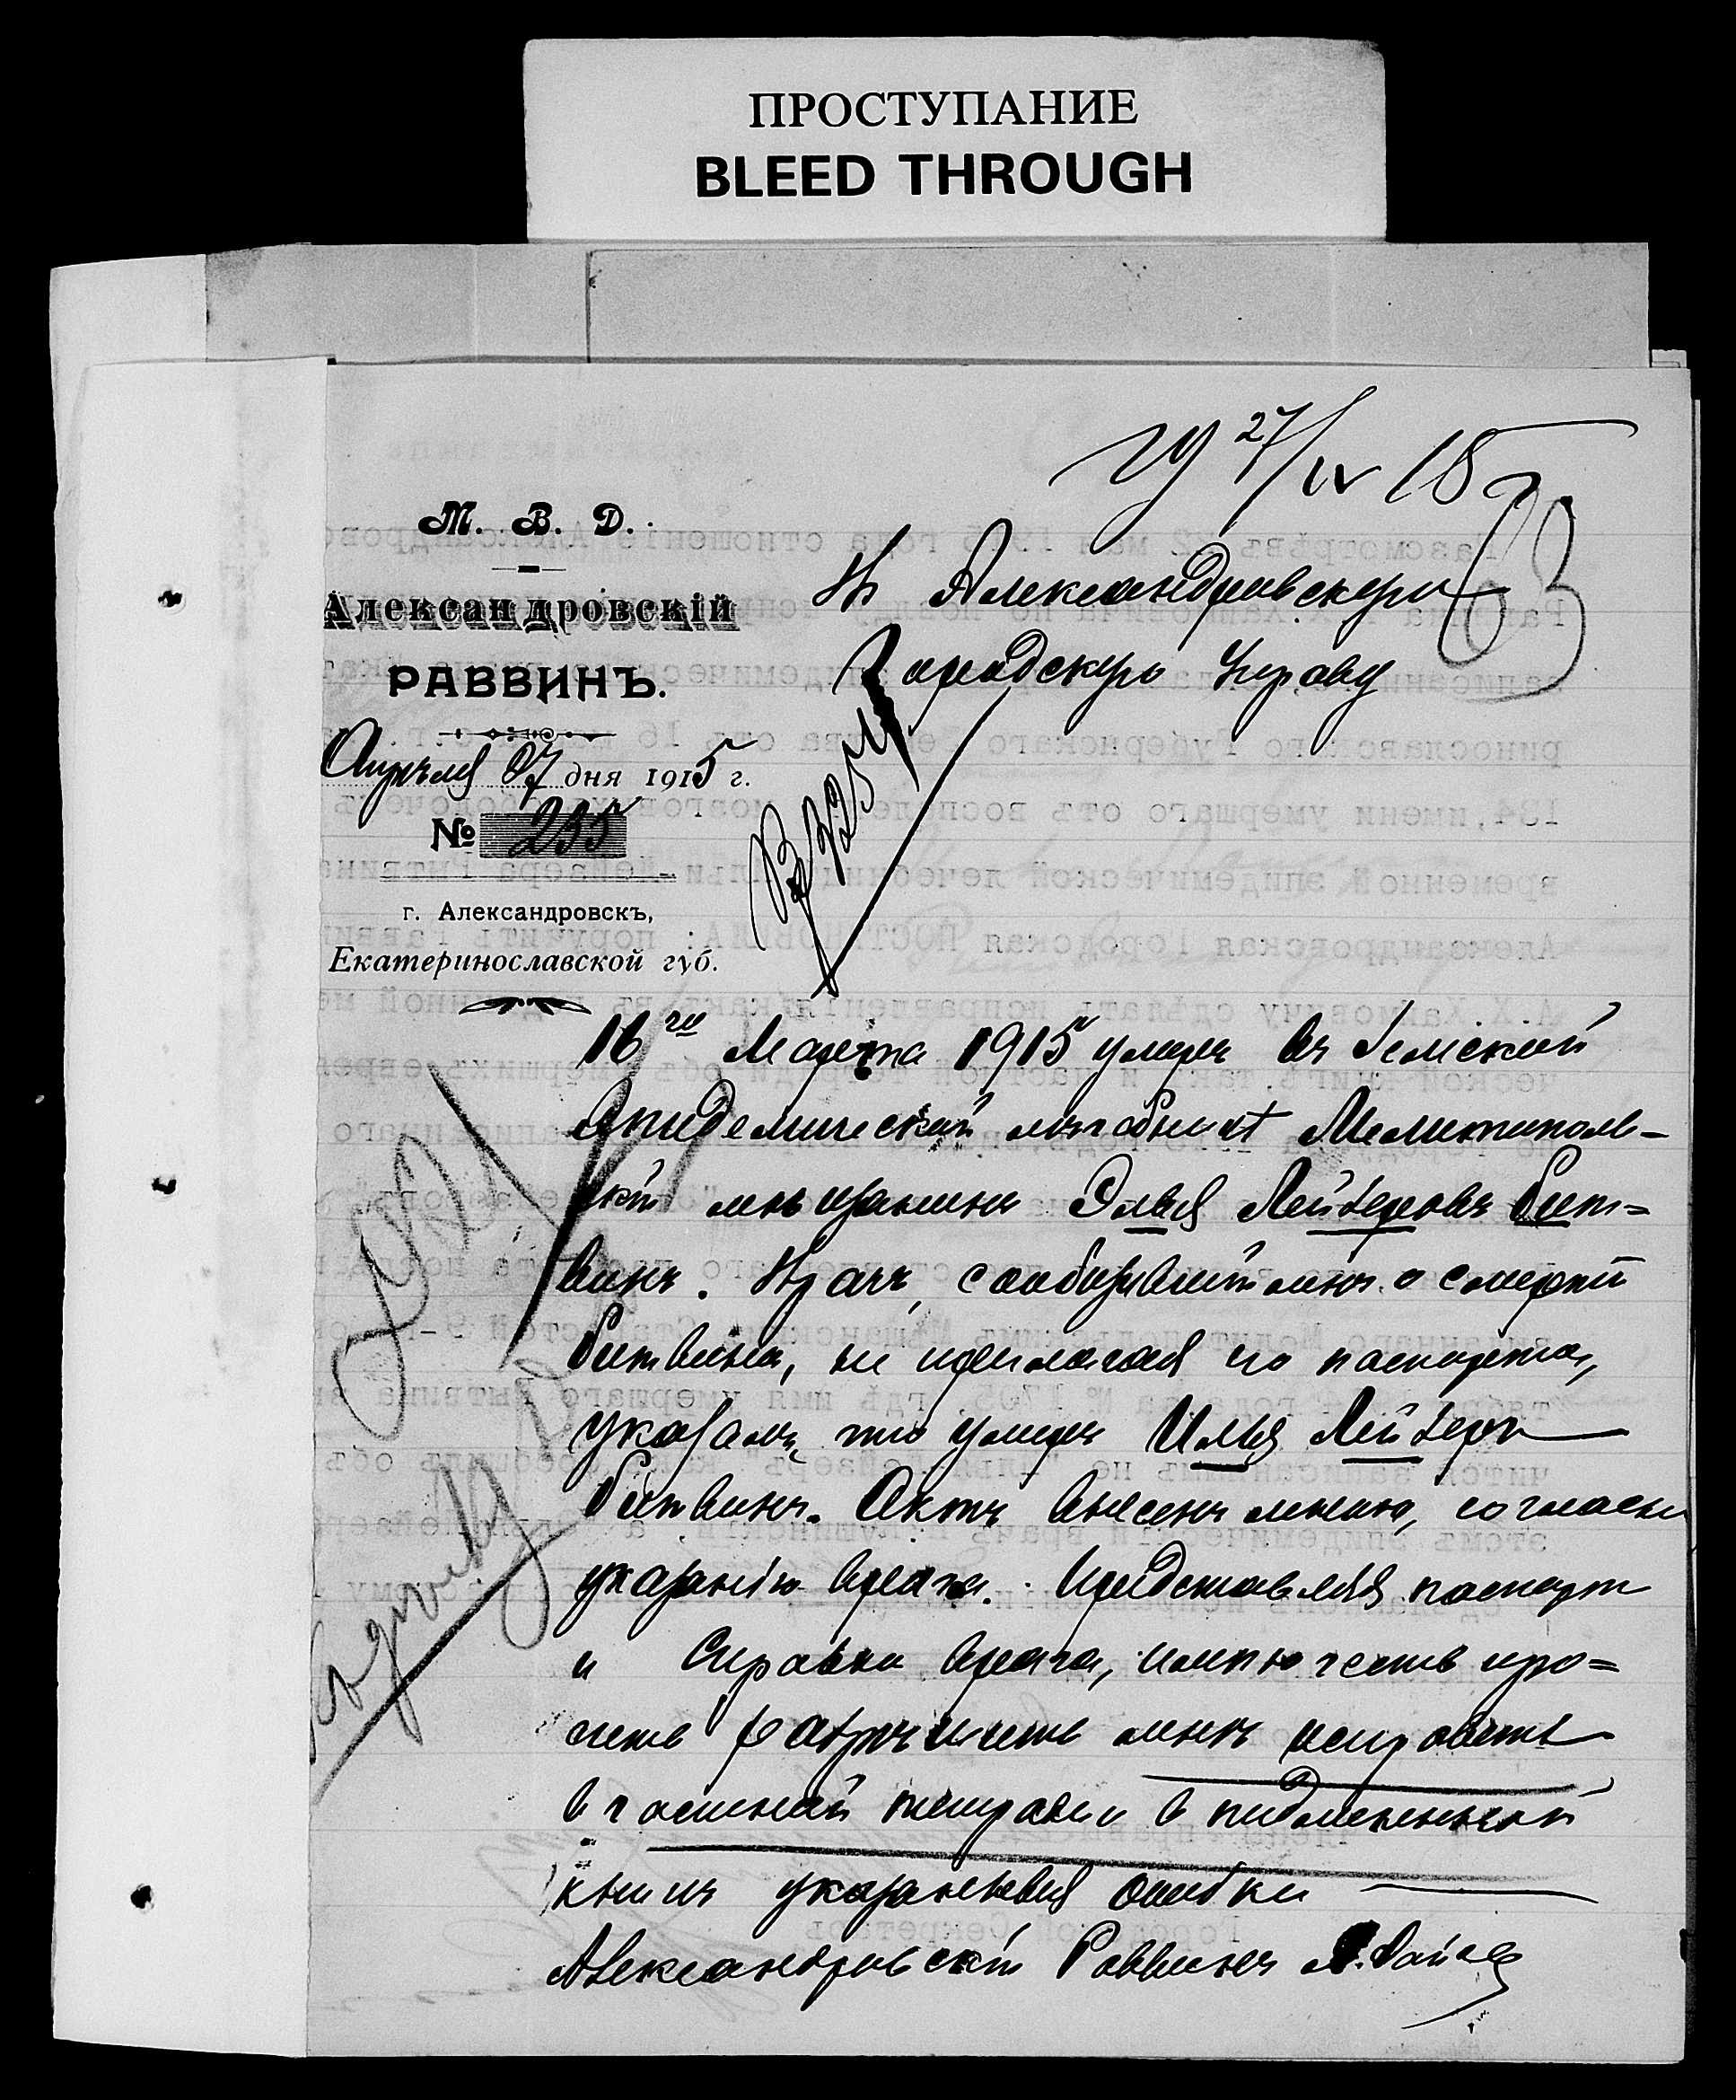 ПРОСТУПАНИЕ
BLEED THROUGH
27/IV 15
63
М. В. Д.
Александровскій
РАВВИНЪ.
Апрѣля 27 дня 1915 г.
№ 235
г. Александровскъ,
Екатеринославской губ.
Въ Александровскую
Городскую Управу
16го Марта 1915 умеръ въ Земской
Эпидемической лѣчебницѣ Мелитополь-
скій мѣщанинъ Эльья Лейзеровъ Рыт-
винъ. Врачъ, сообщившій мнѣ о смерти
Рытвина, не прилагая его паспорта,
указалъ, что умеръ Илья Лейзеръ
Рытвинъ. Актъ внесенъ мною, согласно
указанію врача. Представляя паспортъ
и справки врача, имѣю честь про-
сить разрѣшить мнѣ исправить
в частной тетради и в подлинной
книгѣ указанныя ошибки
Александровскій Раввинъ А.